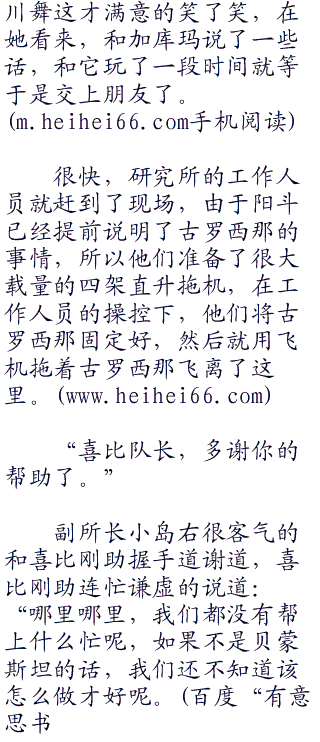 川舞这才满意的笑了笑，在
她看来，和加库玛说了一些
话，和它玩了一段时间就等
于是交上朋友了。
(m.heihei66.com手机阅读)
很快，研究所的工作人
员就赶到了现场，由于阳斗
已经提前说明了古罗西那的
事情，所以他们准备了很大
载量的四架直升拖机，在工
作人员的操控下，他们将古
罗西那固定好，然后就用飞
机拖着古罗西那飞离了这
里。(www.heihei66.com)
“喜比队长，多谢你的
帮助了。”
副所长小岛右很客气的
和喜比刚助握手道谢道，喜
比刚助连忙谦虚的说道：
“哪里哪里，我们都没有帮
上什么忙呢，如果不是贝蒙
斯坦的话，我们还不知道该
怎么做才好呢。(百度“有意
思书